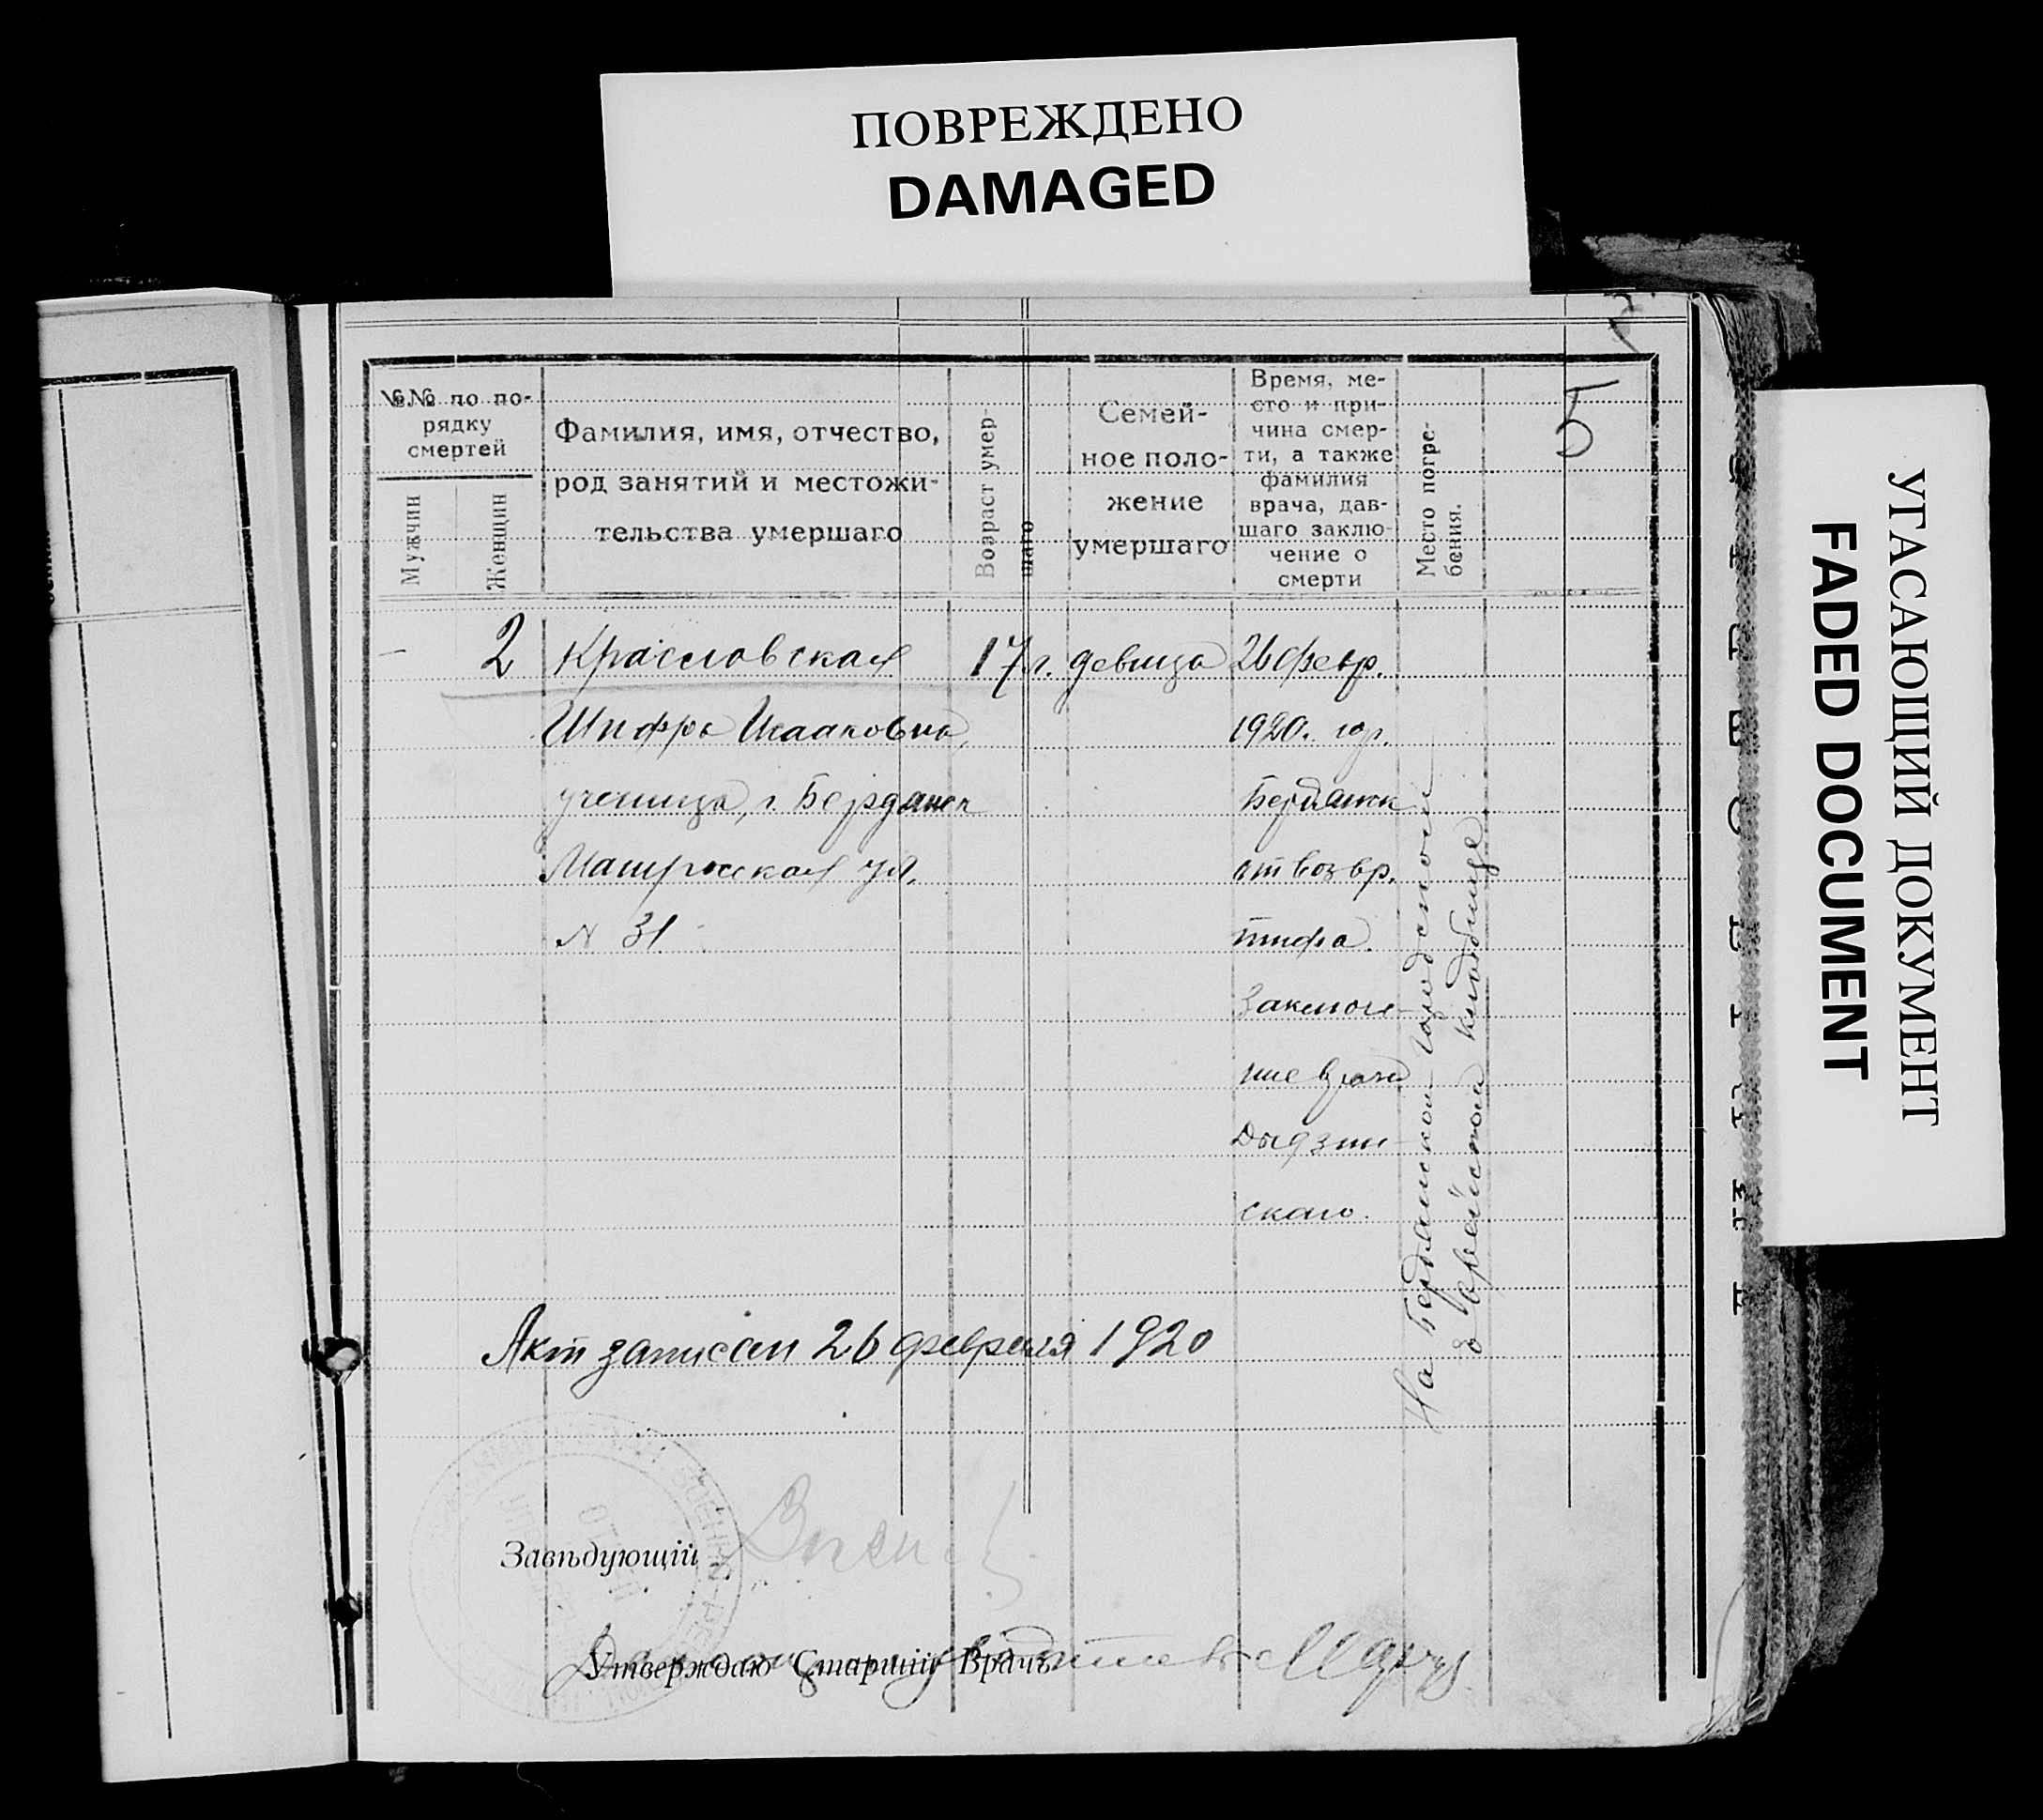 ПОВРЕЖДЕНО
DAMAGED
УГАСАЮЩИЙ ДОКУМЕНТ
FADED DOCUMENT
5
№№ по по-
рядку
смертей
Мужчин
Женщин
Фамилия, имя, отчество,
род занятий и местожи-
тельства умершаго
Возраст умер-
шаго
Семей-
ное поло-
жение
умершаго
Время, ме-
сто и при-
чина смер-
ти, а также
фамилия
врача, дав-
шаго заклю-
чение о
смерти
Место погре-
бения.
— 2
Шифра Исааковна,
ученица, г. Бердянск
Матросская ул.
N 31
17 л.
девица
26 февр.
1920. гор.
Бердянск
от возвр.
тифа.
Заключе-
ние врача
скаго.
На Бердянском городском
еврейском кладбище
Акт записан 26 февраля 1920
Завѣдующій
Утверждаю Старшій Врачъ